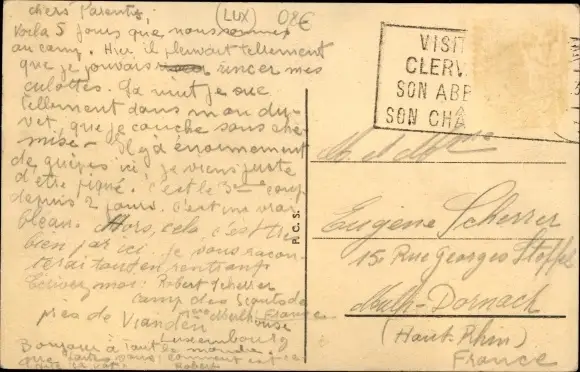 chers Parents,
(LUX) 02€
Voila 5 jours que nous sommes
au camp. Hier il pleuvait tellement
que je pouvais rincer mes
culottes. La nuit je sue
tellement dans mon du-
vet, que je couche sans che
mise - Il y a énormement
de guêpes ici, je viens juste
d'être piqué. c'est le 3ème coup
depuis 2 jours. C'est un vrai
fléau. Alors, cela c'est très
bien par ici. je vous racon-
terai tout en rentrant
Ecrivez moi: Robert Scherrer
camp des Scouts de
Mulhouse
près de Vianden
Luxembourg
Bonjour à tout le monde.
que faites vous; comment est-ce
que ça va?
Robert
VISIT
CLERV
SON ABB
SON CHÂ
M. et Mme
Eugène Scherrer
15 Rue Georges Stoffel
Mulh-Dornach
(Haut Rhin)
France
P.C.S.